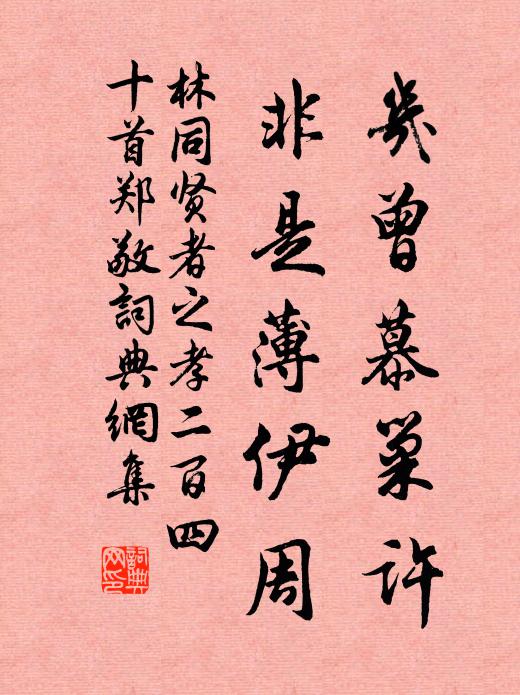 幾曾慕巢许
非是薄伊周
林同贤者之孝二百四
十首郑敬詞典網集
詞典
网印